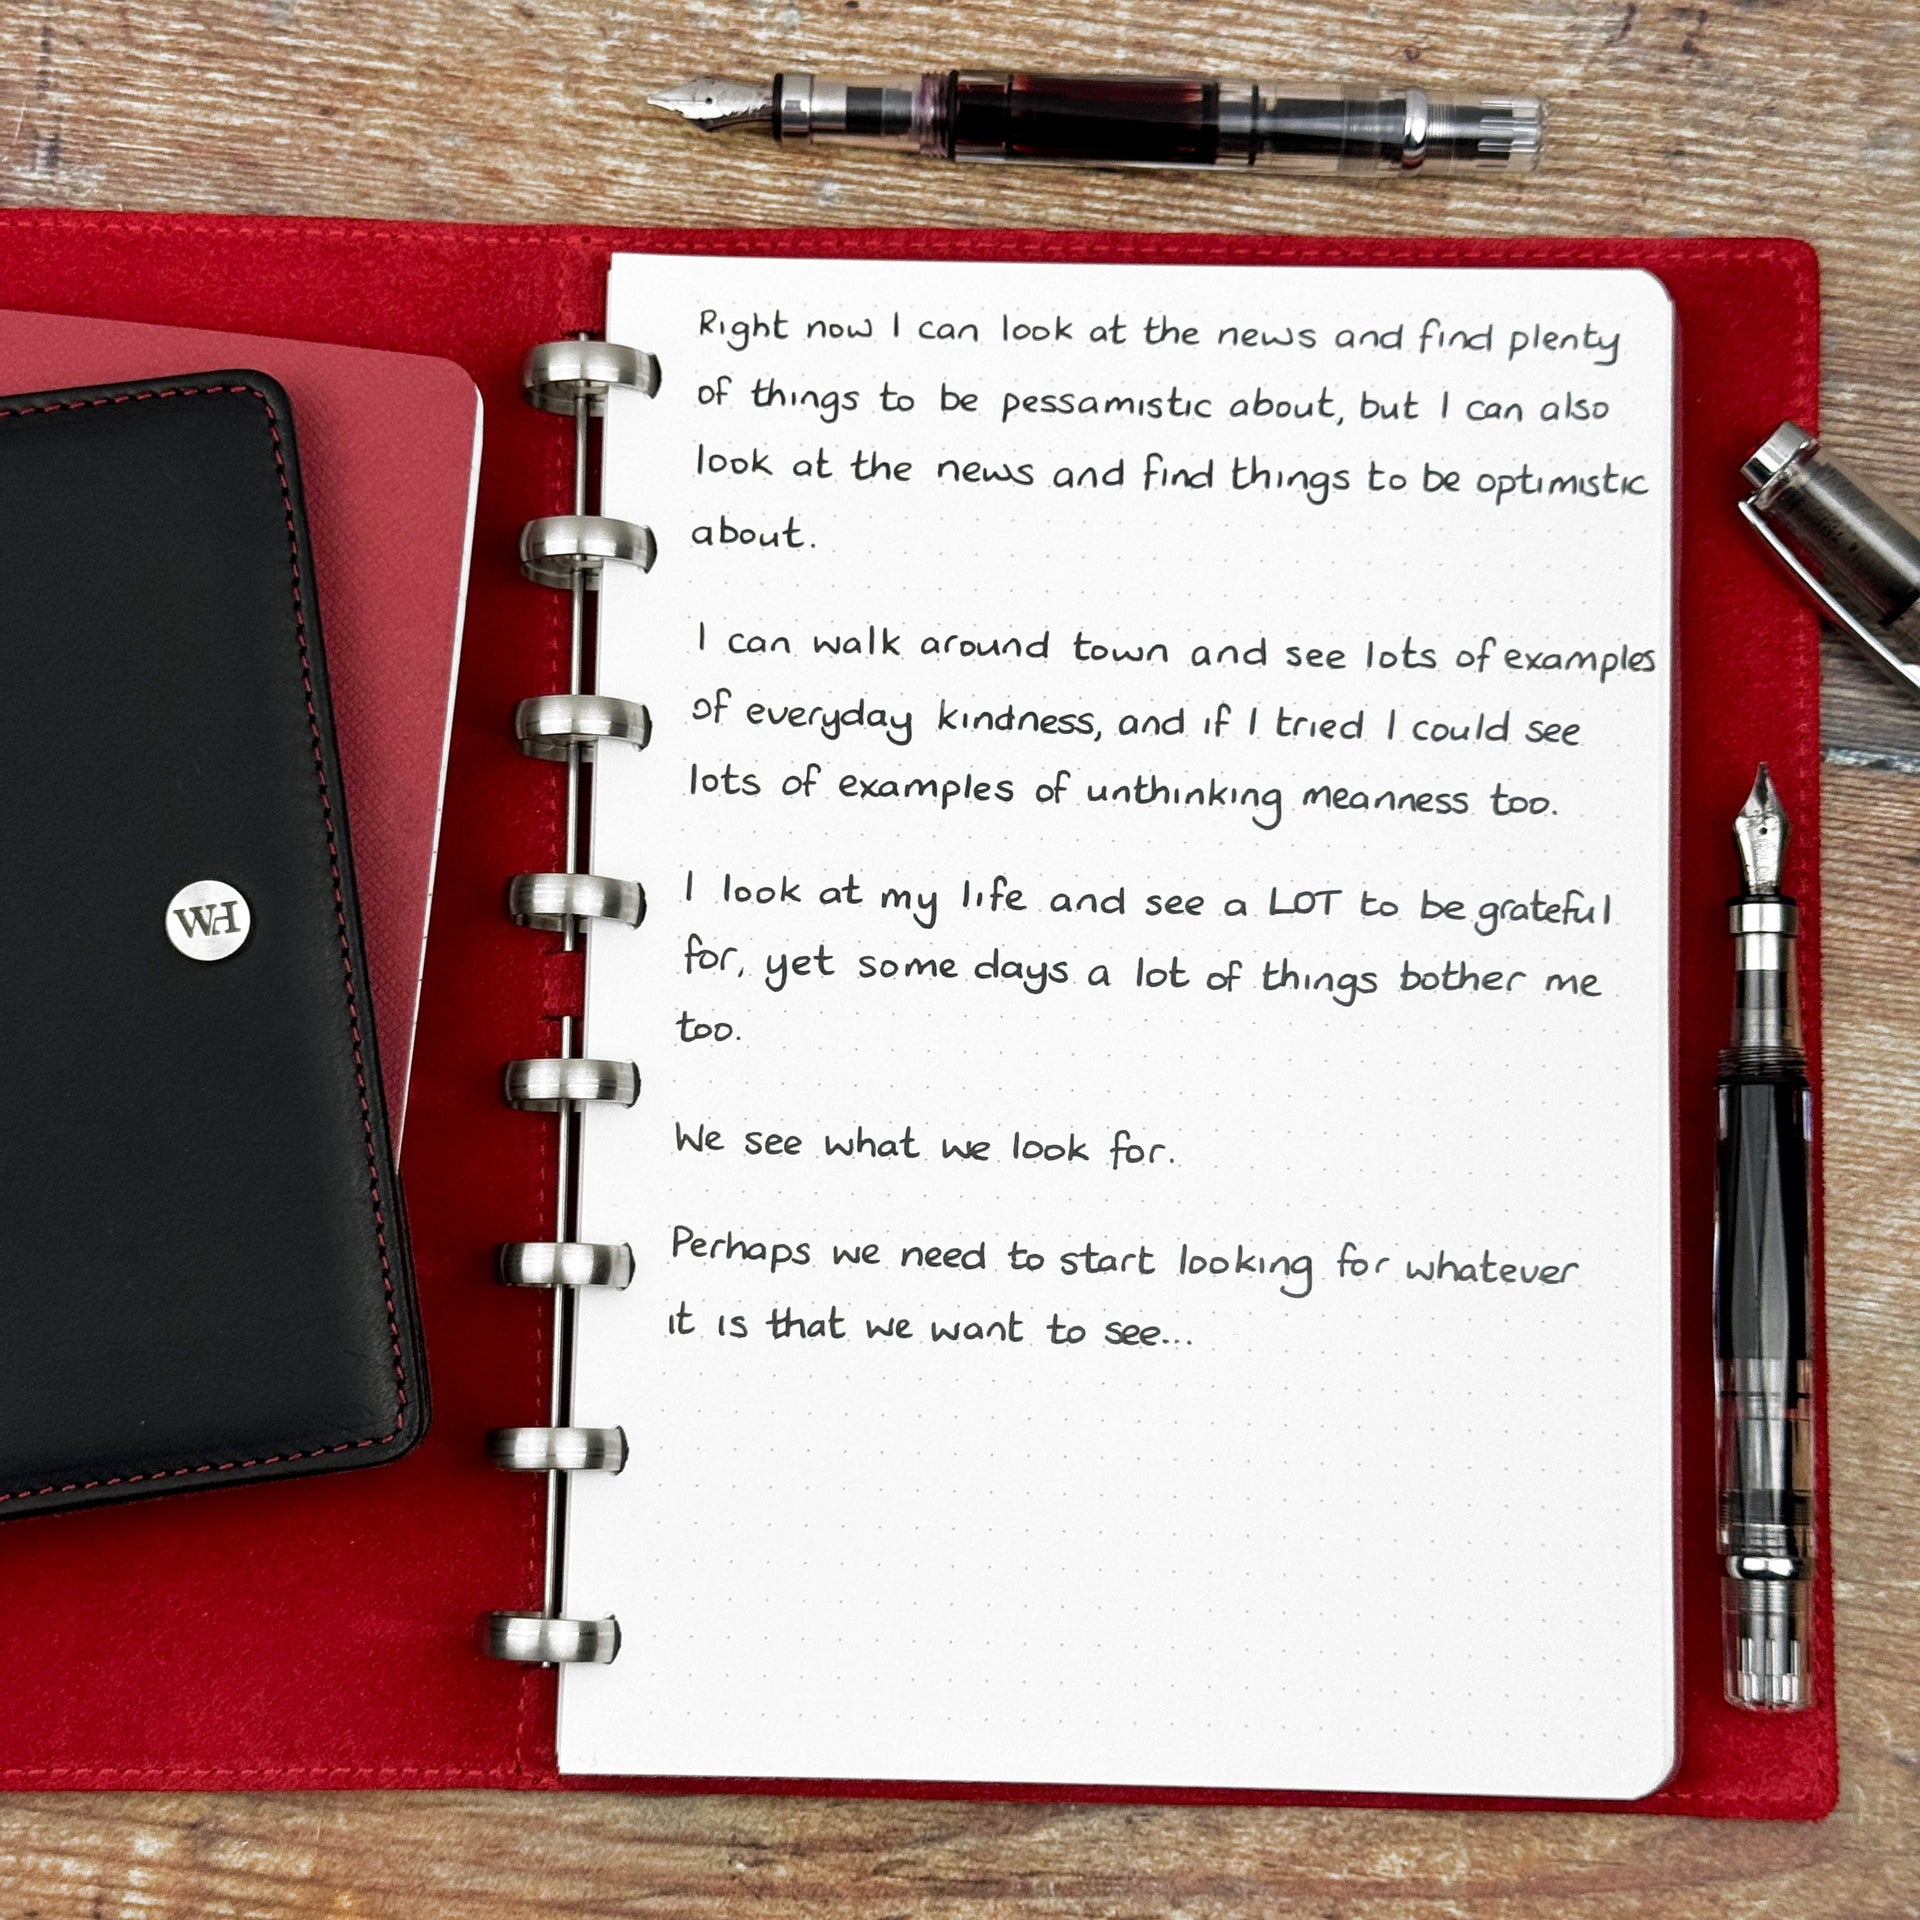 WH
Right now I can look at the news and find plenty
of things to be pessamistic about, but I can also
look at the news and find things to be optimistic
about.
I can walk around town and see lots of examples
of everyday kindness, and if I tried I could see
lots of examples of unthinking meanness too.
I look at my life and see a LOT to be grateful
for, yet some days a lot of things bother me
too.
We see what we look for.
Perhaps we need to start looking for whatever
it is that we want to see...